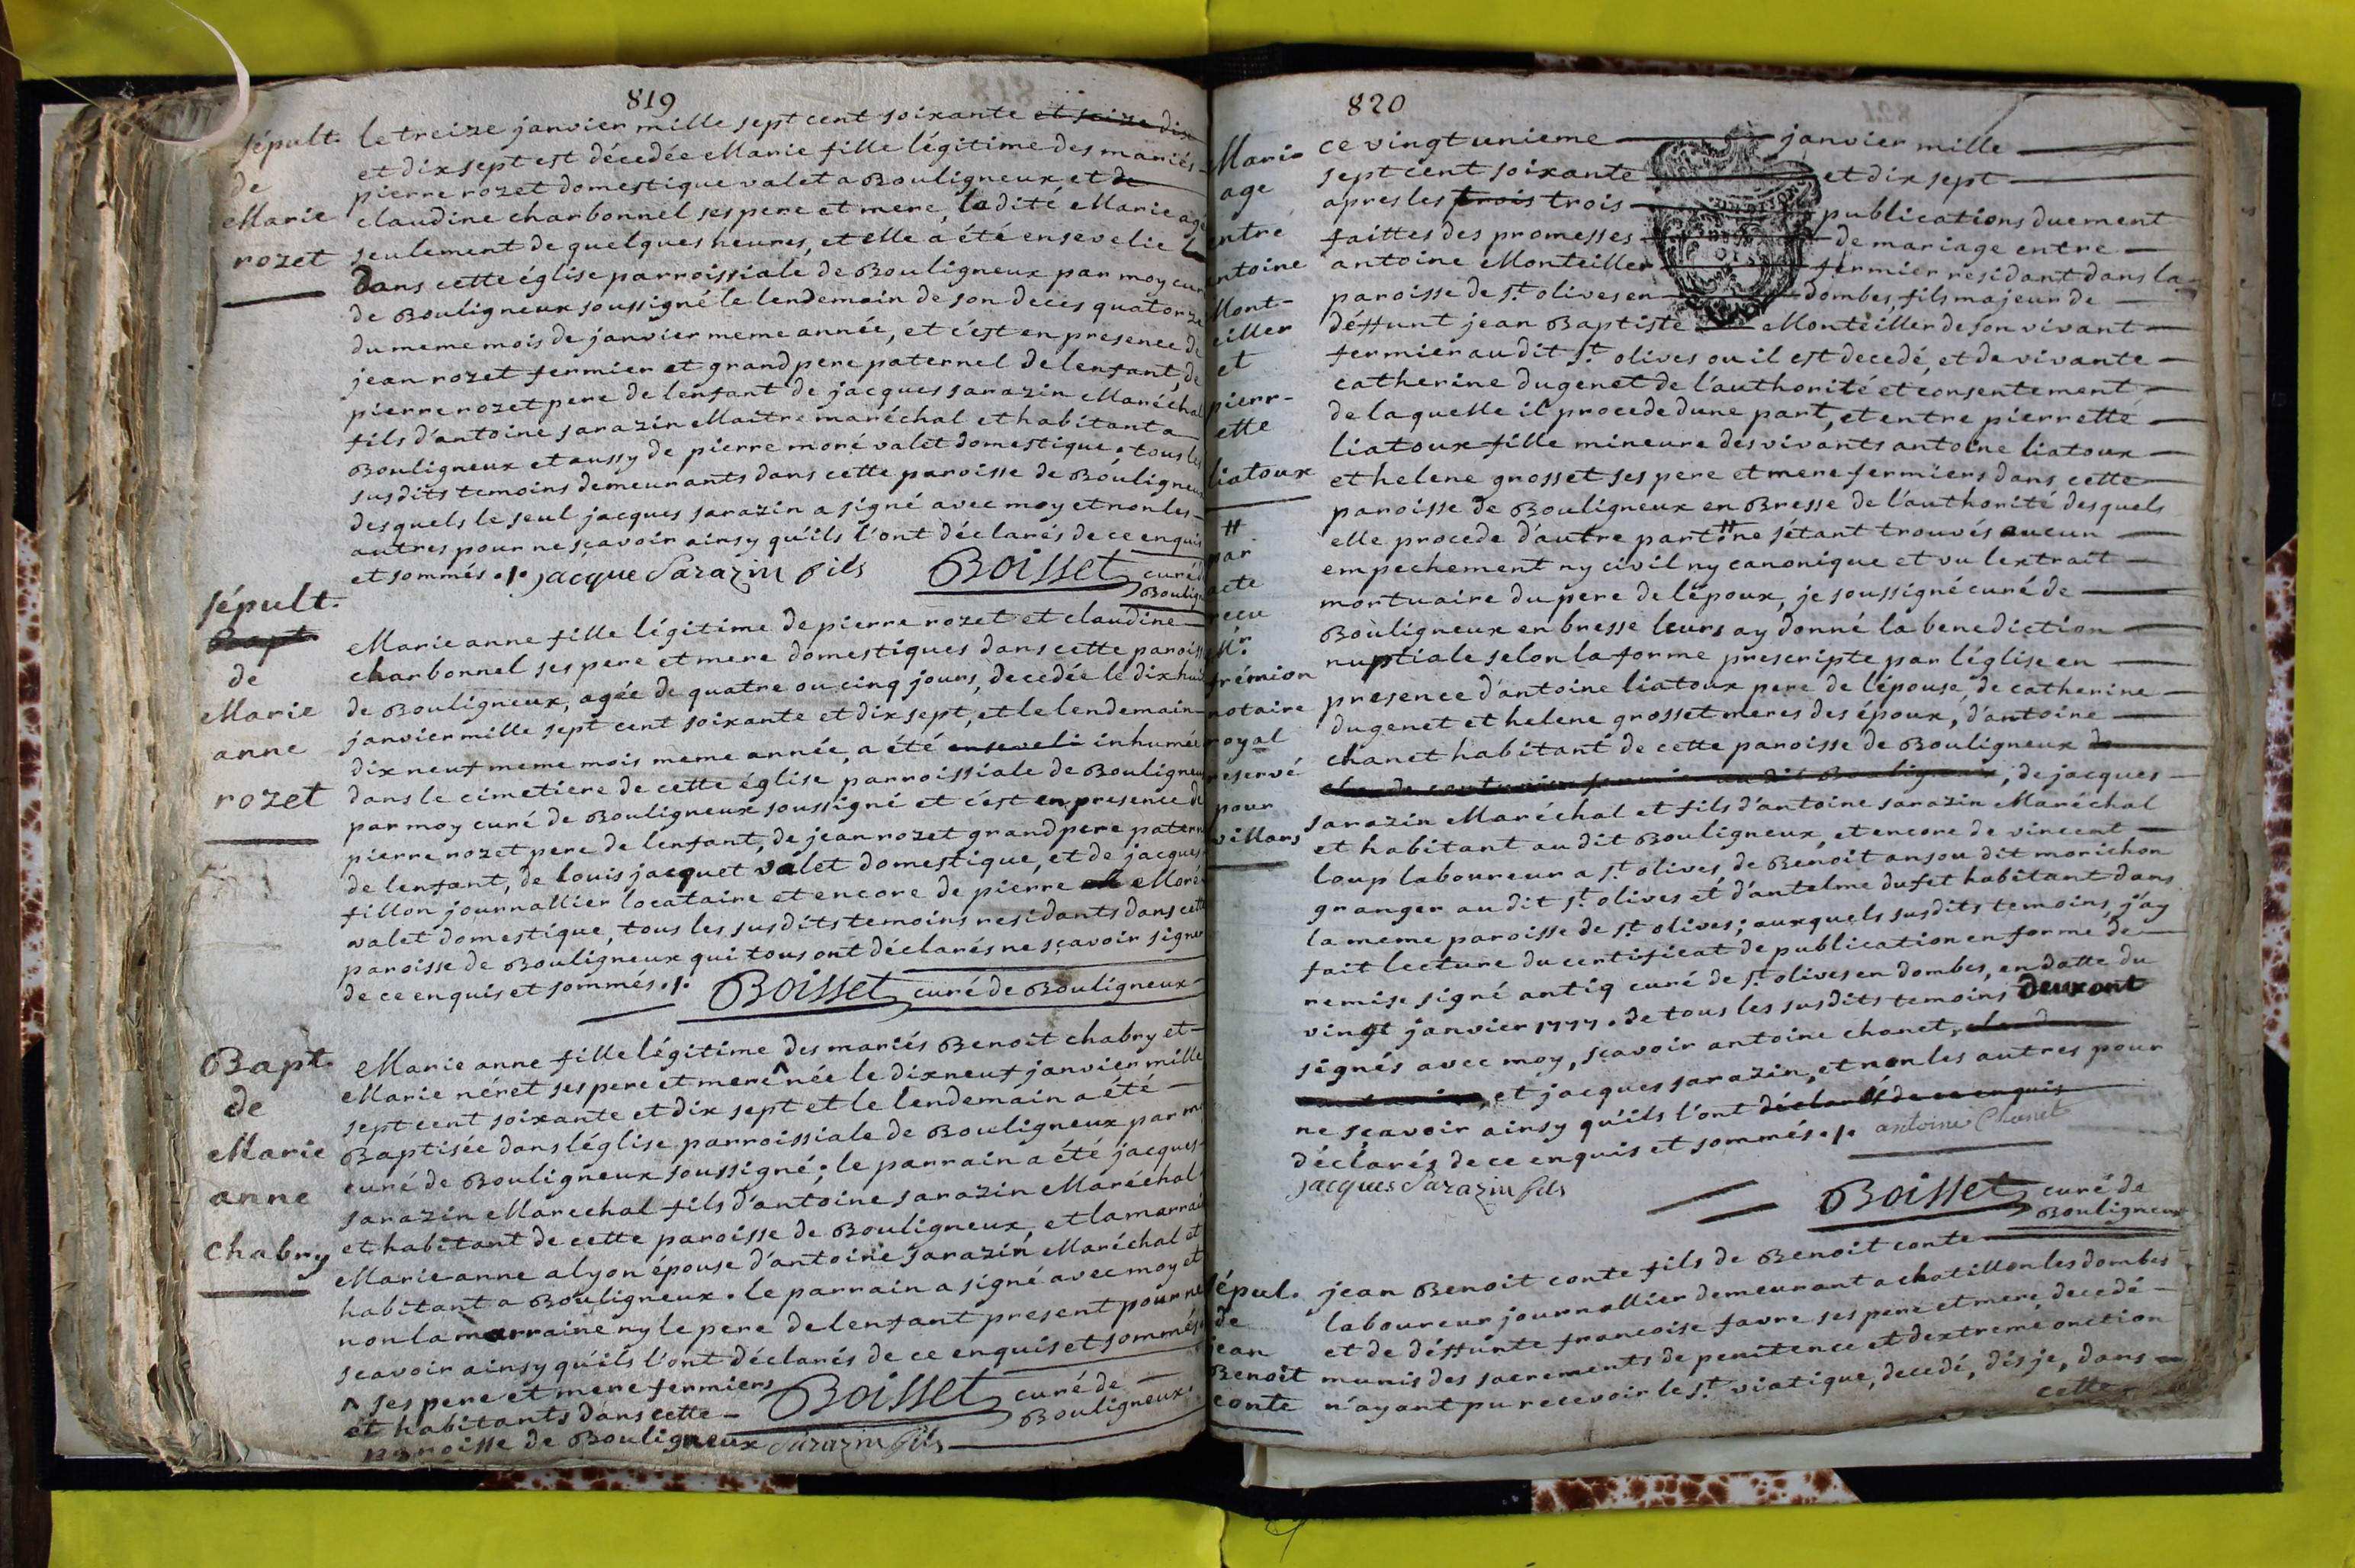 819
sépult.
de
Marie
rozet
le treize janvier mille sept cent soixante et seize dix
et dix sept est décedée Marie fille légitime des mariés
pierre rozet domestique valet a Bouligneux et de
claudine charbonnel ses pere et mere, ladité Marie agé
seulement de quelques heures, et elle a été ensevelie
Dans cette église parroissiale de Bouligneux par moy cur
de Bouligneux soussigné le lendemain de son deces quatorze
du meme mois de janvier meme année, et c'est en presence de
jean rozet fermier et grand pere paternel de lenfant, de
pierre rozet pere de lenfant de jacques sarazin Maréchal
fils d'antoine sarazin Maitre maréchal et habitant a
Bouligneux et aussy de pierre moré valet domestique. tous les
susdits temoins demeurants dans cette paroisse de Bouligneux
desquels le seul jacques sarazin a signé avec moy et non les
autres pour ne sçavoir ainsy qu'ils l'ont déclarés de ce enquis
et sommés ./. jacque Sarazin fils Boisset curé d
Boulign
sépult.
Bapt
de
Marie
anne
rozet
Marie anne fille légitime de pierre rozet et claudine
charbonnel ses pere et mere domestiques dans cette paroiss
de Bouligneux, agée de quatre ou cinq jours, decedée le dixhui
janvier mille sept cent soixante et dix sept, et le lendemain
dix neuf meme mois meme année, a été enseveli inhumée
dans le cimetiere de cette église parroissiale de Bouligneux
par moy curé de Bouligneux soussigné et c'est en presence de
pierre rozet pere de lenfant, de jean rozet grand pere patern
de lenfant, de louis jacquet valet domestique, et de jacques
fillon journallier locataire et encore de pierre Moré
valet domestique, tous les susdits temoins residants dans cette
paroisse de Bouligneux qui tous ont déclarés ne sçavoir signer
de ce enquis et sommés ./. Boisset curé de Bouligneux
Bapt.
de
Marie
anne
chabry
Marie anne fille légitime des mariés Benoit chabry et
Marie néret ses pere et mere ^ née le dixneuf janvier mille
sept cent soixante et dix sept et le lendemain a été
Baptisée dans léglise parroissiale de Bouligneux par mo
curé de Bouligneux soussigné; le parrain a été jacques
sarazin Marechal fils d'antoine sarazin Maréchal
et habitant de cette paroisse de Bouligneux, et la marrai
Marie anne alyon épouse d'antoine sarazin Maréchal et
habitant a Bouligneux. le parrain a signé avec moy et
non la marraine ny le pere de lenfant present pour ne
scavoir ainsy qu'ils l'ont déclarés de ce enquis et sommés
^ ses pere et mere fermiers
et habitants dans cette
paroisse de Bouligneux
Boisset curé de
Bouligneux.
Sarazin fils
820
Mari-
age
entre
antoine
Mont-
eiller
et
pierr-
ette
liatoux
#
par
acte
recu
Mr.
frémion
notaire
royal
reservé
pour
villars
ce vingt unieme janvier mille
sept cent soixante et dix sept
apres les trois trois publications duement
faittes des promesses de mariage entre
antoine Monteiller fermier residant dans la
paroisse de st. olives en dombes, fils majeur de
déffunt jean Baptiste Monteiller de son vivant
fermier au dit st. olives ou il est decedé, et de vivante
catherine dugenet de l'authorité et consentement
de laquelle il procede dune part, et entre pierrette
liatoux fille mineure des vivants antoine liatoux
et helene grosset ses pere et mere fermiers dans cette
paroisse de Bouligneux en Bresse de l'authorité desquels
elle procede d'autre part.# ne s'étant trouvés aucun
empechement ny civil ny canonique et vu lextrait
mortuaire du pere de lépoux, je soussigné curé de
Bouligneux en bresse leurs ay donné la benediction
nuptiale selon la forme prescripte par léglise en
presence d'antoine liatoux pere de l'épouse, de catherine
dugenet et helene grosset meres des époux, d'antoine
chanet habitant de cette paroisse de Bouligneux
, de jacques
sarazin Maréchal et fils d'antoine sarazin Maréchal
et habitant au dit Bouligneux, et encore de vincent
loup laboureur a st. olives, de Benoit ansou dit morichon
granger au dit st. olives et d'antelme dufet habitant dans
la meme paroisse de st. olives; auxquels susdits temoins j'ay
fait lecture du certificat de publication en forme de
remise signé antiq curé de st. olives en dombes, en datte du
vingt janvier 1777. de tous les susdits temoins deux ont
signés avec moy, scavoir antoine chanet,
, et jacques sarazin, et non les autres pour
ne sçavoir ainsy qu'ils l'ont déclarés de ce enquis
déclarés de ce enquis et sommés ./. antoine Chanet
jacques Sarazin fils
Boisset curé de
Bouligneux
sépul.
de
jean
Benoît
conte
jean Benoit conte fils de Benoit conte
laboureur journallier demeurant a chatillon les dombes
et de déffunte francoise favre ses pere et mere, decedé
munis des sacrements de penitence et dextreme onction
n'ayant pu recevoir le st. viatique, decedé, dis je, dans
cette